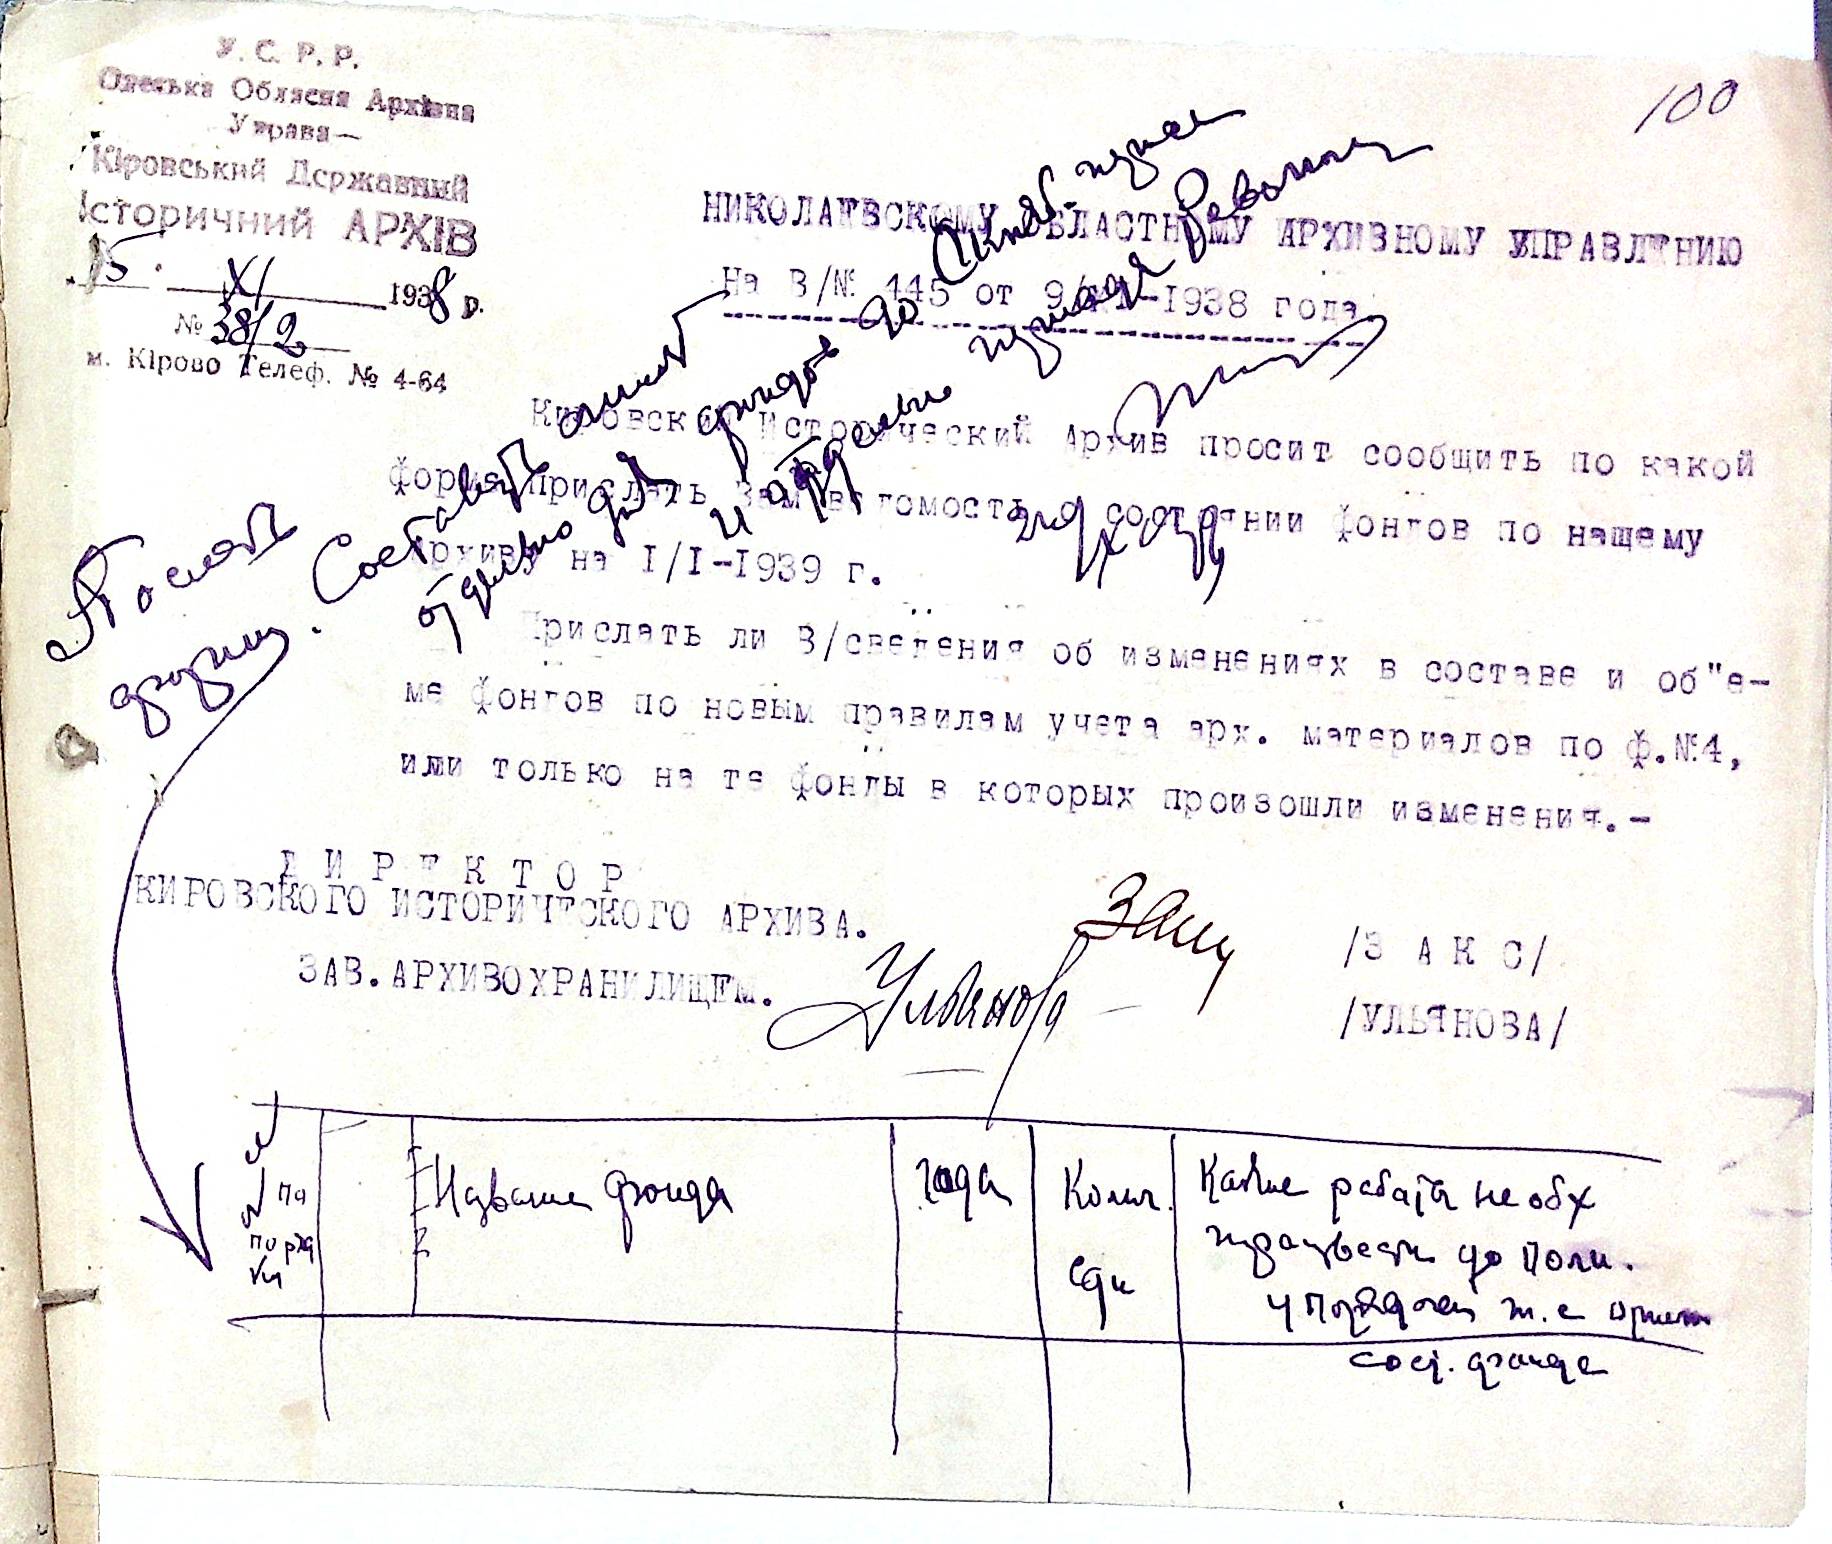 У.С.Р.Р.
Одеська Обласна Архівна
Управа—
Кіровський Державний
Історичний АРХІВ
15. XI 1938 р.
№ 38/2
м. Кірово Телеф. № 4-64
100
НИКОЛАЕВСКОМУ ОБЛАСТНОМУ АРХИВНОМУ УПРАВЛЕНИЮ
На В/№ 445 от 9/XI-1938 года
Кировский Исторический Архив просит сообщить по какой
форме прислать Вам ведомость о состоянии фонгов по нашему
Архиву на I/I-1939 г.
Прислать ли В/сведения об изменениях в составе и об"е-
ме фонгов по новым правилам учета арх. материалов по ф.№4,
или только на те фонды в которых произошли изменения.-
ДИРЕКТОР
КИРОВСКОГО ИСТОРИЧЕСКОГО АРХИВА.
/З А К С/
ЗАВ.АРХИВОХРАНИЛИЩЕМ.
Ульянова
/УЛЬЯНОВА/
Послать
форму. Составить
отдельно для фондов до
и отдельно
№№ по порядку
Название фонда
года
Колич. един
Какие работы необх
произвести до полн.
упорядочен т.е
сост. фонда